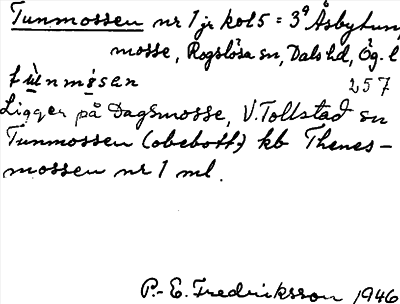 Tunmossen nr 1 jr kol 5 = 3º Åsbytun,
mosse, Rogslösa sn, Dals hd, Ög. l
tùnmosen 257
Ligger på Dagsmosse, V. Tollstad sn
Tunmossen (obebott.) kb Thenes-
mossen nr 1 ml.
P.-E. Fredriksson 1946